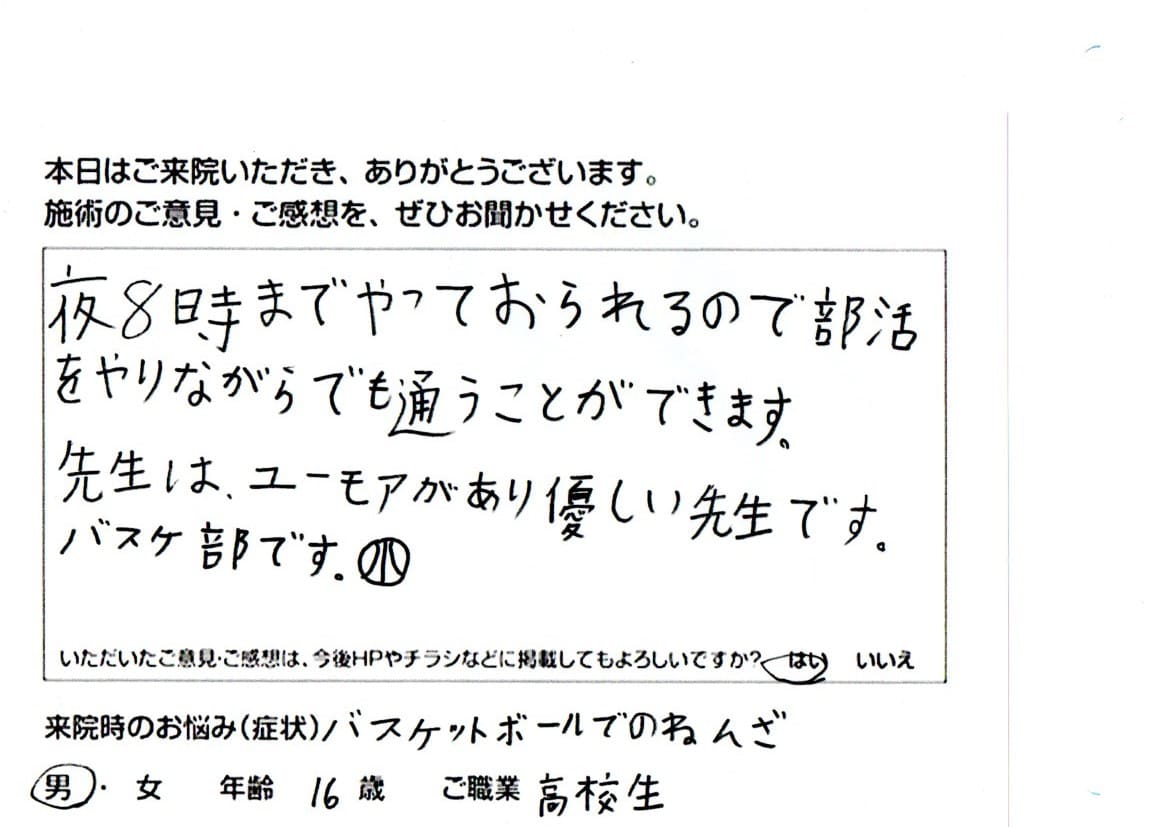 本日はご来院いただき、ありがとうございます。
施術のご意見・ご感想を、ぜひお聞かせください。
夜8時までやっておられるので部活
をやりながらでも通うことができます。
先生は、ユーモアがあり優しい先生です。
バスケ部です。
いただいたご意見・ご感想は、今後HPやチラシなどに掲載してもよろしいですか? はい いいえ
来院時のお悩み(症状)バスケットボールでのねんざ
男・女 年齢 16 歳 ご職業 高校生